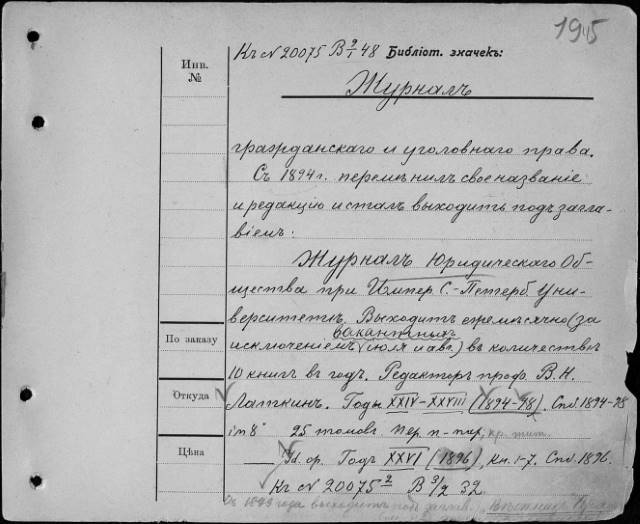 1915
Кт № 20075 В 9/1 48 Библіот. значекъ:
Инв. №
Журналъ
гражданскаго и уголовнаго права.
Съ 1894 г. перемѣнилъ свое названіе
и редакцію и сталъ выходить подъ загла-
віемъ:
Журналъ Юридическаго Об-
щества при Импер С.-Петерб. Уни-
верситетѣ. Выходитъ ежемѣсячно (за
вакантныхъ
По заказу
исключеніемъ іюля и авг.) въ количествѣ
10 книгъ въ годъ. Редакторъ проф. В.Н.
Откуда
Латкинъ. Годы XXIV-XXVIII (1894-98). Спб. 1894-98
in 8° 25 томовъ. пер. п-пкр, кр. тит.
Цѣна
— Id. op. Годъ XXVI (1896), Кн. 1-7. Спб. 1896.
Кт № 20075 2 В 3/2 32.
Съ 1899 года выходитъ подъ заглав. Вѣстникъ